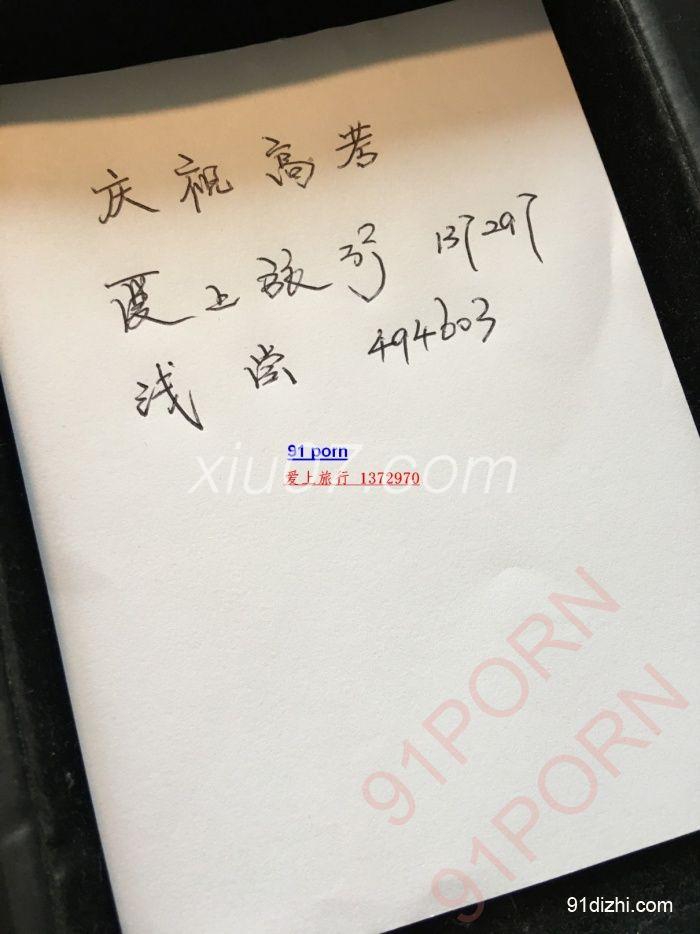 庆祝高考
爱上旅行 137297
浅尝 494603
91 porn
xiu07.com
爱上旅行 1372970
91PORN
91PORN
91dizhi.com